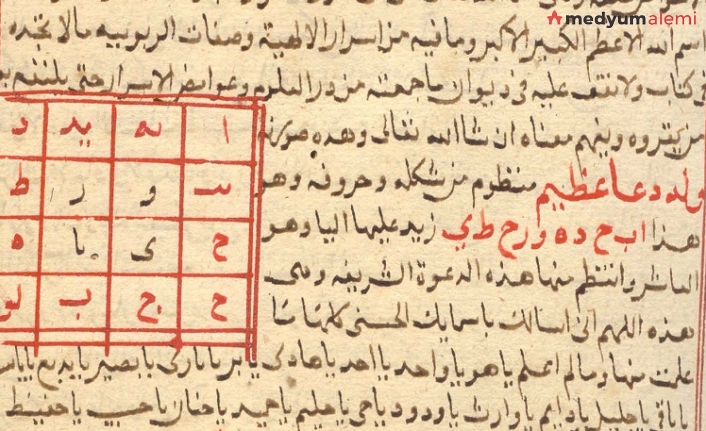 medyumalemi
اسم الله الاعظم الكبير الاكبر وما فيه من اسرار الالهية وصفات الربوبيه مالا تجده
فى كتاب ولا تقف عليه فى ديوان ما جمعته من در العلوم وغوامض الاسرار حتى ينتفع به
من يقروه ويفهم معناه ان شا الله تعالى وهذه صورته
وله دعا عظيم منظوم من شكله وحروفه وهو
هذا اب ح د ه و ر ح ط ي زيد عليها اليا وهو
العاشر وانتظم منها هذه الدعوة الشريفه وهى
هذه اللهم انى اسالك باسمايك الحسنى كلها ما
علمت منها وما لم اعلم يا هو يا واحد يا احد يا هادى يا بر يا بارى يا بصير يا بديع
يا باقى يا جليل يا دايم يا وارث يا ودود يا حى يا حليم يا حميد يا حنان يا حسيب يا حفيظ
ا
يد
د
و
ر
ط
ح
ى
يا
ه
ح
ج
ب